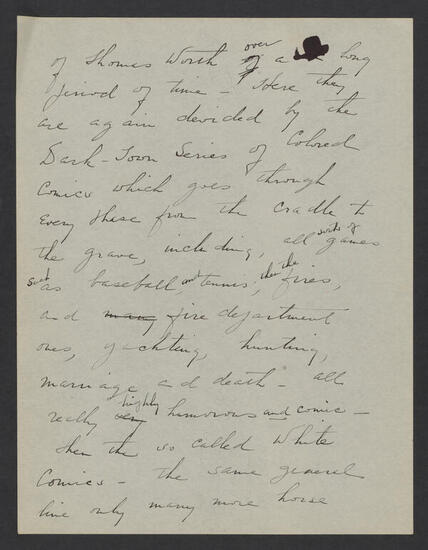 of Thomas Worth over a long
period of time – Here they
are again devided by the
Dark-Town Series of Colored
Comics which goes through
every phase from the cradle to
the grave, including, all sorts of games
such as baseball, and tennis, then the fires,
and many fire department
ones, yachting, hunting,
marriage and death – all
really very highly humorous and comic –
Then the so called White
Comics – the same general
line only many more horse